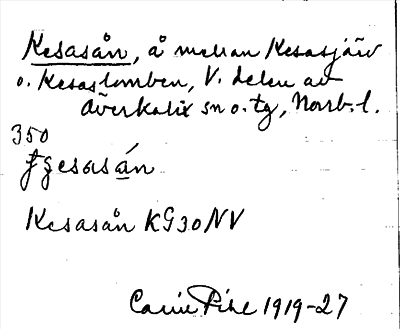 Kesasån, å mellan Kesasjärv
o. Kesaslomben, V. delen av
Överkalix sn o. tg, Norrb. l.
350
gesasån
Kesasån KG30NV
Carin Pihl 1919-27